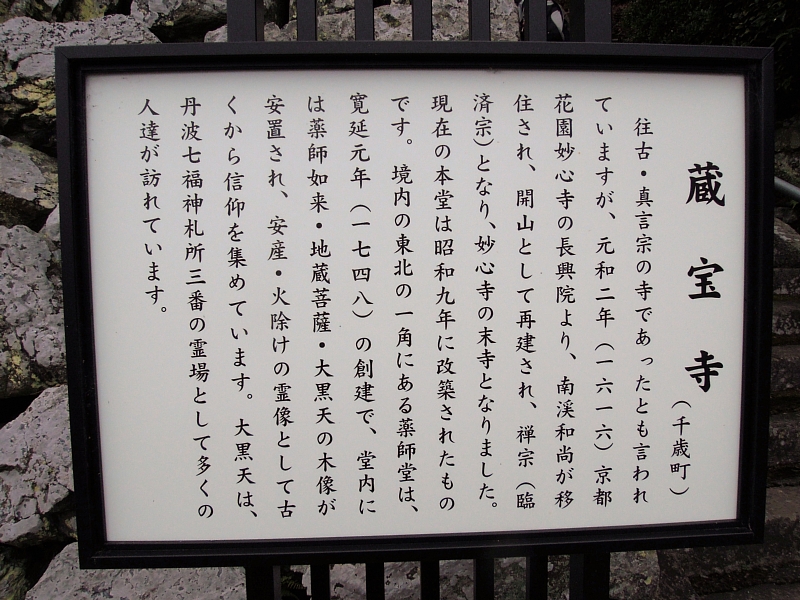 蔵宝寺
（千歳町）
往古・真言宗の寺であったとも言われ
ていますが、元和二年（一六一六）京都
花園妙心寺の長興院より、南渓和尚が移
住され、開山として再建され、禅宗（臨
済宗）となり、妙心寺の末寺となりました。
現在の本堂は昭和九年に改築されたもの
です。境内の東北の一角にある薬師堂は、
寛延元年（一七四八）の創建で、堂内に
は薬師如来・地蔵菩薩・大黒天の木像が
安置され、安産・火除けの霊像として古
くから信仰を集めています。大黒天は、
丹波七福神札所三番の霊場として多くの
人達が訪れています。